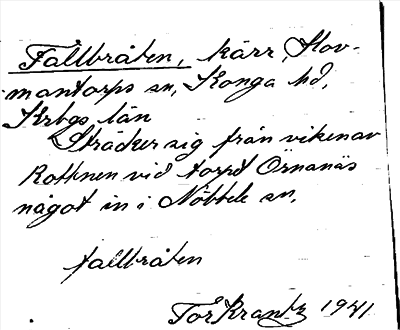 Fållbråten, kärr, Hov-
mantorps sn, Konga hd,
Krbgs län
Sträcker sig från viken av
Rottnen vid torpet Örnanäs
något in i Nöbbele sn.
fallbråten
Tor Krantz 1941